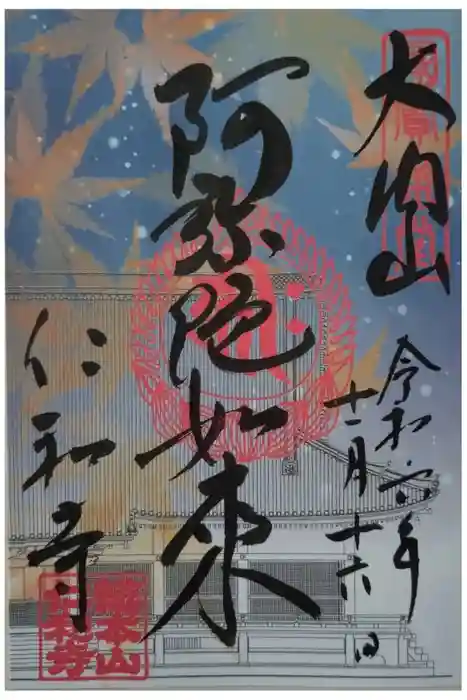 大内山
令和六年
十一月十六日
阿弥陀如来
仁和寺
總本山
仁和寺